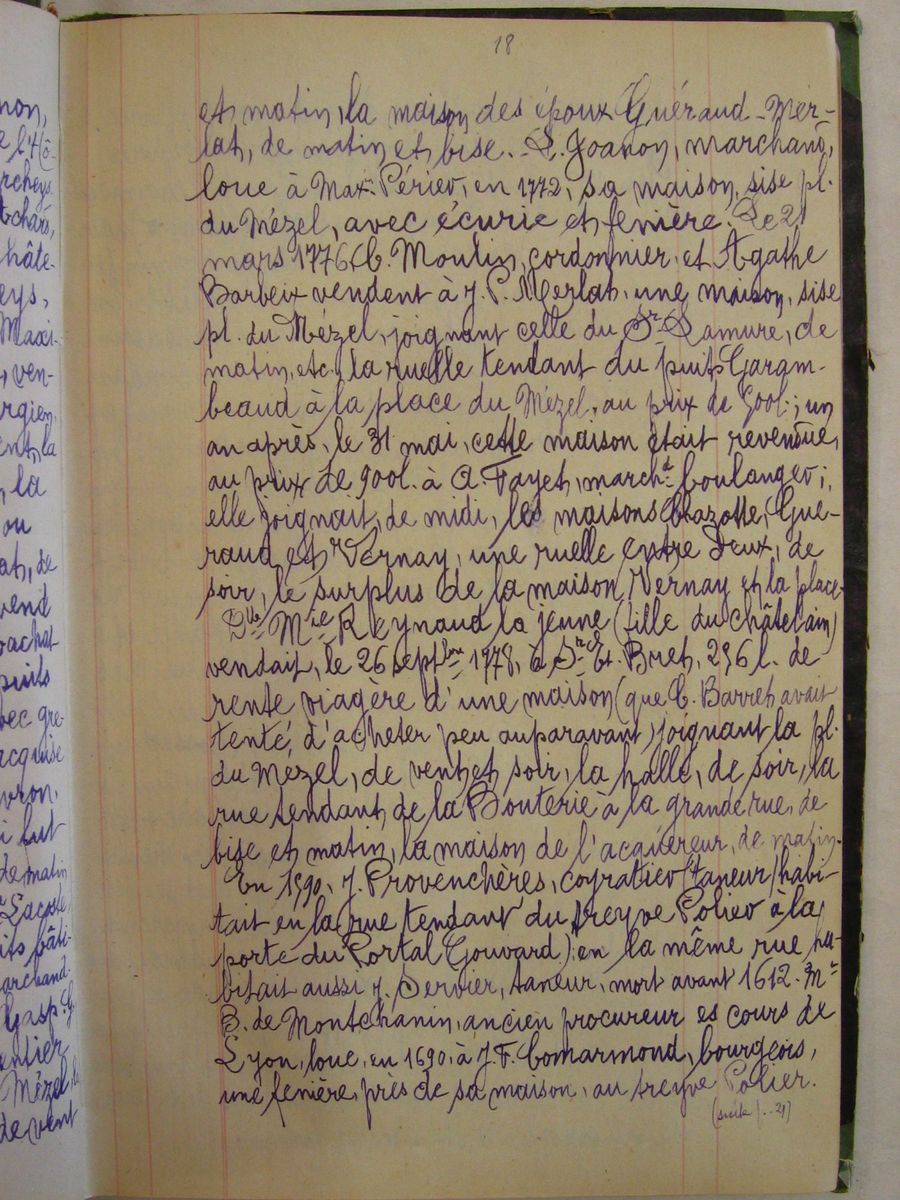 18
non,
rcheys
tchard,
hâte-
eys,
Maxi-
ven-
rgien,
ent, la
, la
ou
at, de
vend
oachat
puits
vec gre-
acquise
vron,
i fut
de matin
Lacoste
its bâti-
archand.
Gasp. G.
entier,
Mézel, le
de vent
et matin, la maison des époux Guéraud-Mer-
lat, de matin et bise. L. Joanon, marchand,
loue à Max. Périer, en 1772, sa maison, sise pl.
du Mézel, avec écurie et fenière. Le 21
mars 1776, C. Moulin, cordonnier et Agathe
Barbeix vendent à J. P. Merlat, une maison, sise
pl. du Mézel, joignant celle du Sr Lamure, de
matin, etc., la ruelle tendant du puits Garam-
beaud à la place du Mézel, au prix de 900l.; un
an après, le 31 mai, cette maison était revendue,
au prix de 900l. à A. Fayet, marchd boulanger;
elle joignait, de midi, les maisons Chazotte, Gué-
raud et Vernay, une ruelle entre deux, de
soir, le surplus de la maison Vernay et la place.
Dlle Mie Reynaud la jeune (fille du châtelain)
vendait, le 26 septbre 1778, à Sr Et. Bret, 296 l. de
rente viagère d'une maison (que C. Barret avait
tenté d'acheter peu auparavant) joignant la pl.
du Mézel, de vent et soir, la halle, de soir, la
rue tendant de la Bouterie à la grande rue, de
bise et matin, la maison de l'acquéreur, de matin.
En 1590, J. Provenchères, coyratier (taneur) habi-
tait en la rue tendant du treyve Polier à la
porte du Portal Gouvard); en la même rue ha-
bitait aussi J. Servier, taneur, mort avant 1612. Mr
B. de Montchanin, ancien procureur es cours de
Lyon, loue, en 1690, à J. F. Comarmond, bourgeois,
une fenière, près de sa maison, au treyve Polier.
(suite p. 21)